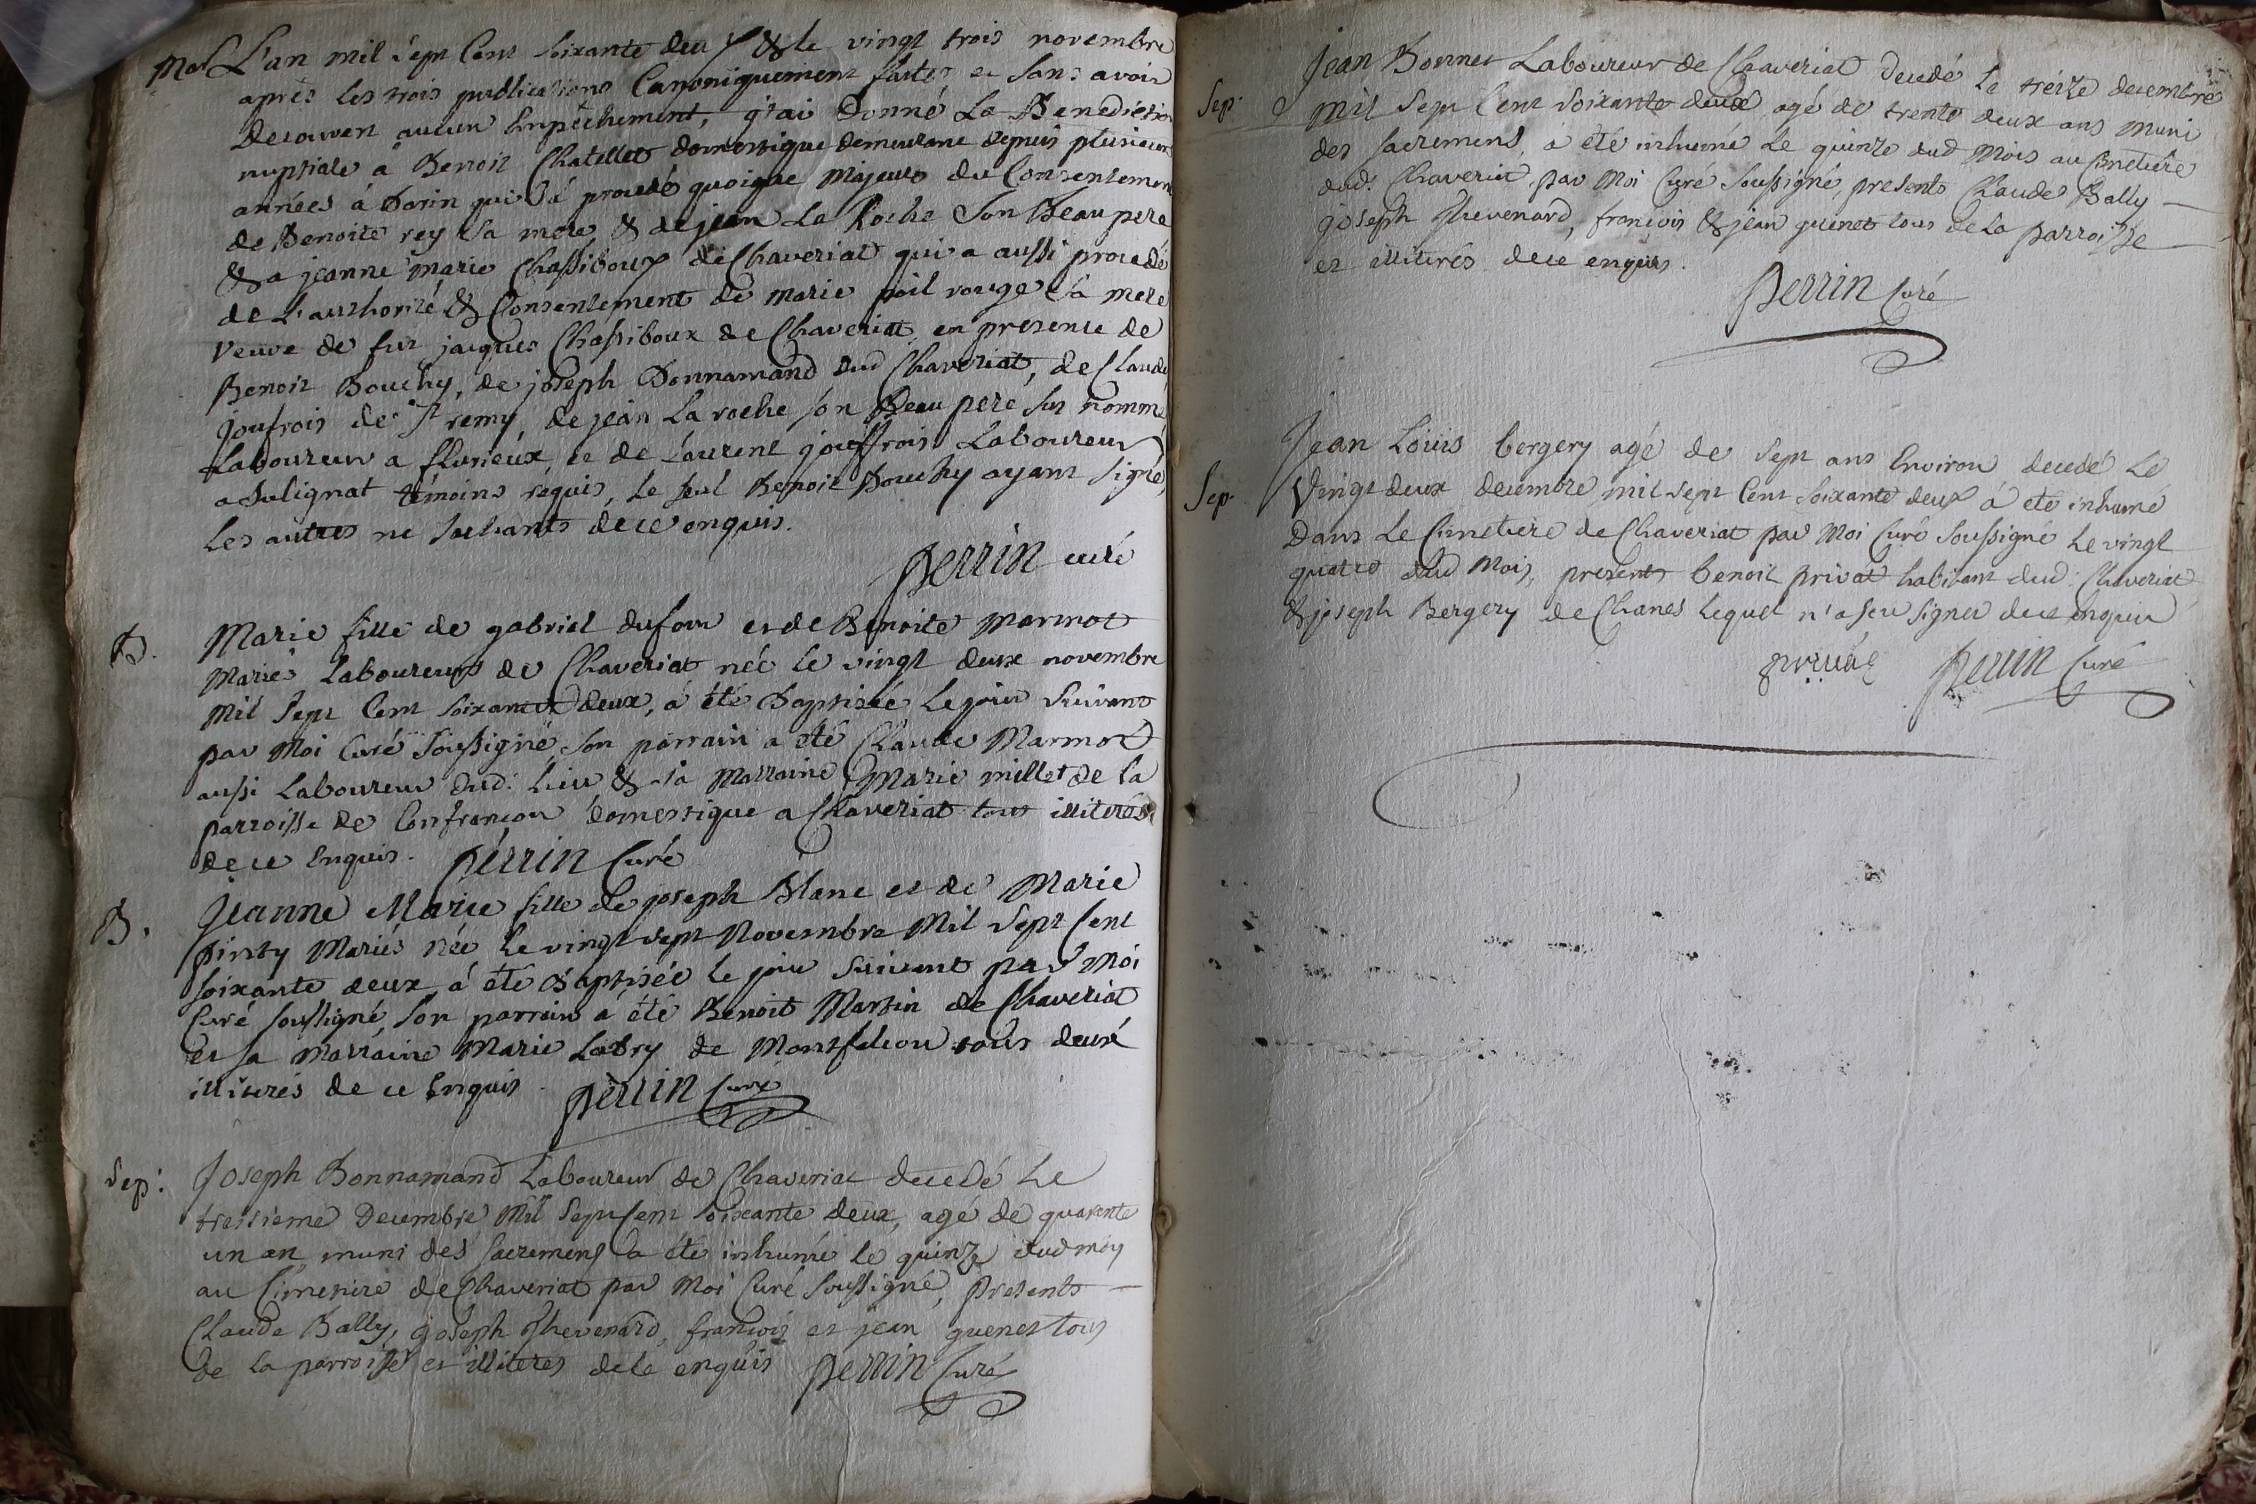 Mar L'an mil sept cent soixante deux & le vingt trois novembre
après les trois publications Canoniquement faites et sans avoir
decouvert aucun Empêchement, j'ai Donné La Benediction
nuptiale à Benoit Chatellet domestique demeurant depuis plusieurs
années à Dorin qui à procedé quoique Majeur du Consentement
de Benoite rey sa mere & de jean La Roche son Beau pere
& a jeanne marie Chassiboux de Chaveriat qui a aussi procedé
de L'authorité & Consentement de marie poil rouge sa mere
veuve de fut jacques Chassiboux de Chaveriat, en presence de
Benoit Bouchy, de joseph Bonnamand dud Chaveriat, de Claude
joufrois de St remy, de jean La roche son Beau pere sus nommé
Laboureur a flurieux, et de Laurent jouffrois Laboureur
a Sulignat témoins requis, le seul Benoit Bouchy ayant signé,
Les autres ne sachants de ce enquis.
Perrin curé
B. Marie fille de gabriel dufour et de Benoite Marmot
Mariés Laboureurs de Chaveriat née le vingt deux novembre
mil sept Cent soixante deux, a été Baptisée le jour suivant
par Moi Curé Soussigné, son parrain a été Claude Marmot
aussi Laboureur dud: Lieu & sa Marraine Marie millet de la
parroisse de Confrançon domestique a Chaveriat tous illiterés
de ce Enquis. Perrin Curé
B. Jeanne Marie fille de joseph Blanc et de Marie
Mariés née le vingt sept Novembre Mil Sept Cent
soixante deux a été Baptisée le jour suivant par Moi
Curé soussigné, son parrain a été Benoit Martin de Chaveriat
et sa Marraine Marie Labry de Montfalcon tous deux
illiterés de ce Enquis. Perrin Curé
Sep: Joseph Bonnamand Laboureur de Chaveriat decedé Le
tressieme Decembre Mil Sept Cent soixante deux, agé de quarente
un an muni des sacremens a été inhumé le quinze dud moy
au Cimetiere de Chaveriat par Moi Curé Soussigné, presents
Claude Bally, joseph Thevenard, françois et jean guenet tous
de la parroisse et illiteres de ce enquis Perrin Curé
Jean Bonnet Laboureur de Chaveriat decedé Le tréize decembre
Sep: mil Sept Cent soixante deux agé de trente deux ans muni
des sacremens, a été inhumé Le quinze dud Mois au Cimetiere
dud: Chaveriat, par Moi Curé Soussigné, presents Claude Bally
joseph Thevenard, françois & jean guenet tous de la parroisse
et illiterés de ce enquis.
Perrin Curé
Jean Louis bergery agé de sept ans Environ decedé Le
Sep. vingt deux decembre mil sept Cent soixante deux a été inhumé
Dans Le Cimetiere de Chaveriat par Moi Curé Soussigné Le vingt
quatre dud Mois, presents benoit privat habitant dud: Chaveriat
& joseph Bergery de Chanes Lequel n'a sçu signer de ce enquis
privat Perrin Curé